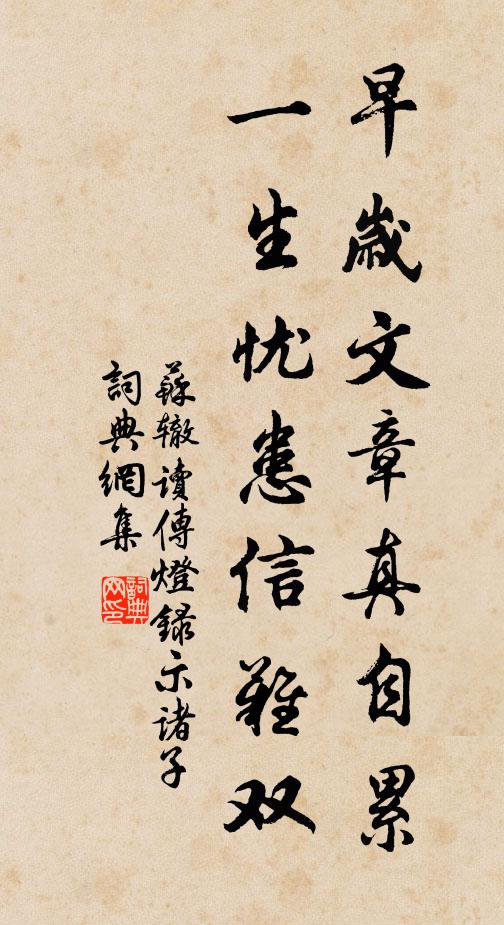 早歲文章真自累
一生忧患信難双
蘇辙讀傳燈録示諸子
詞典網集
詞典
网印